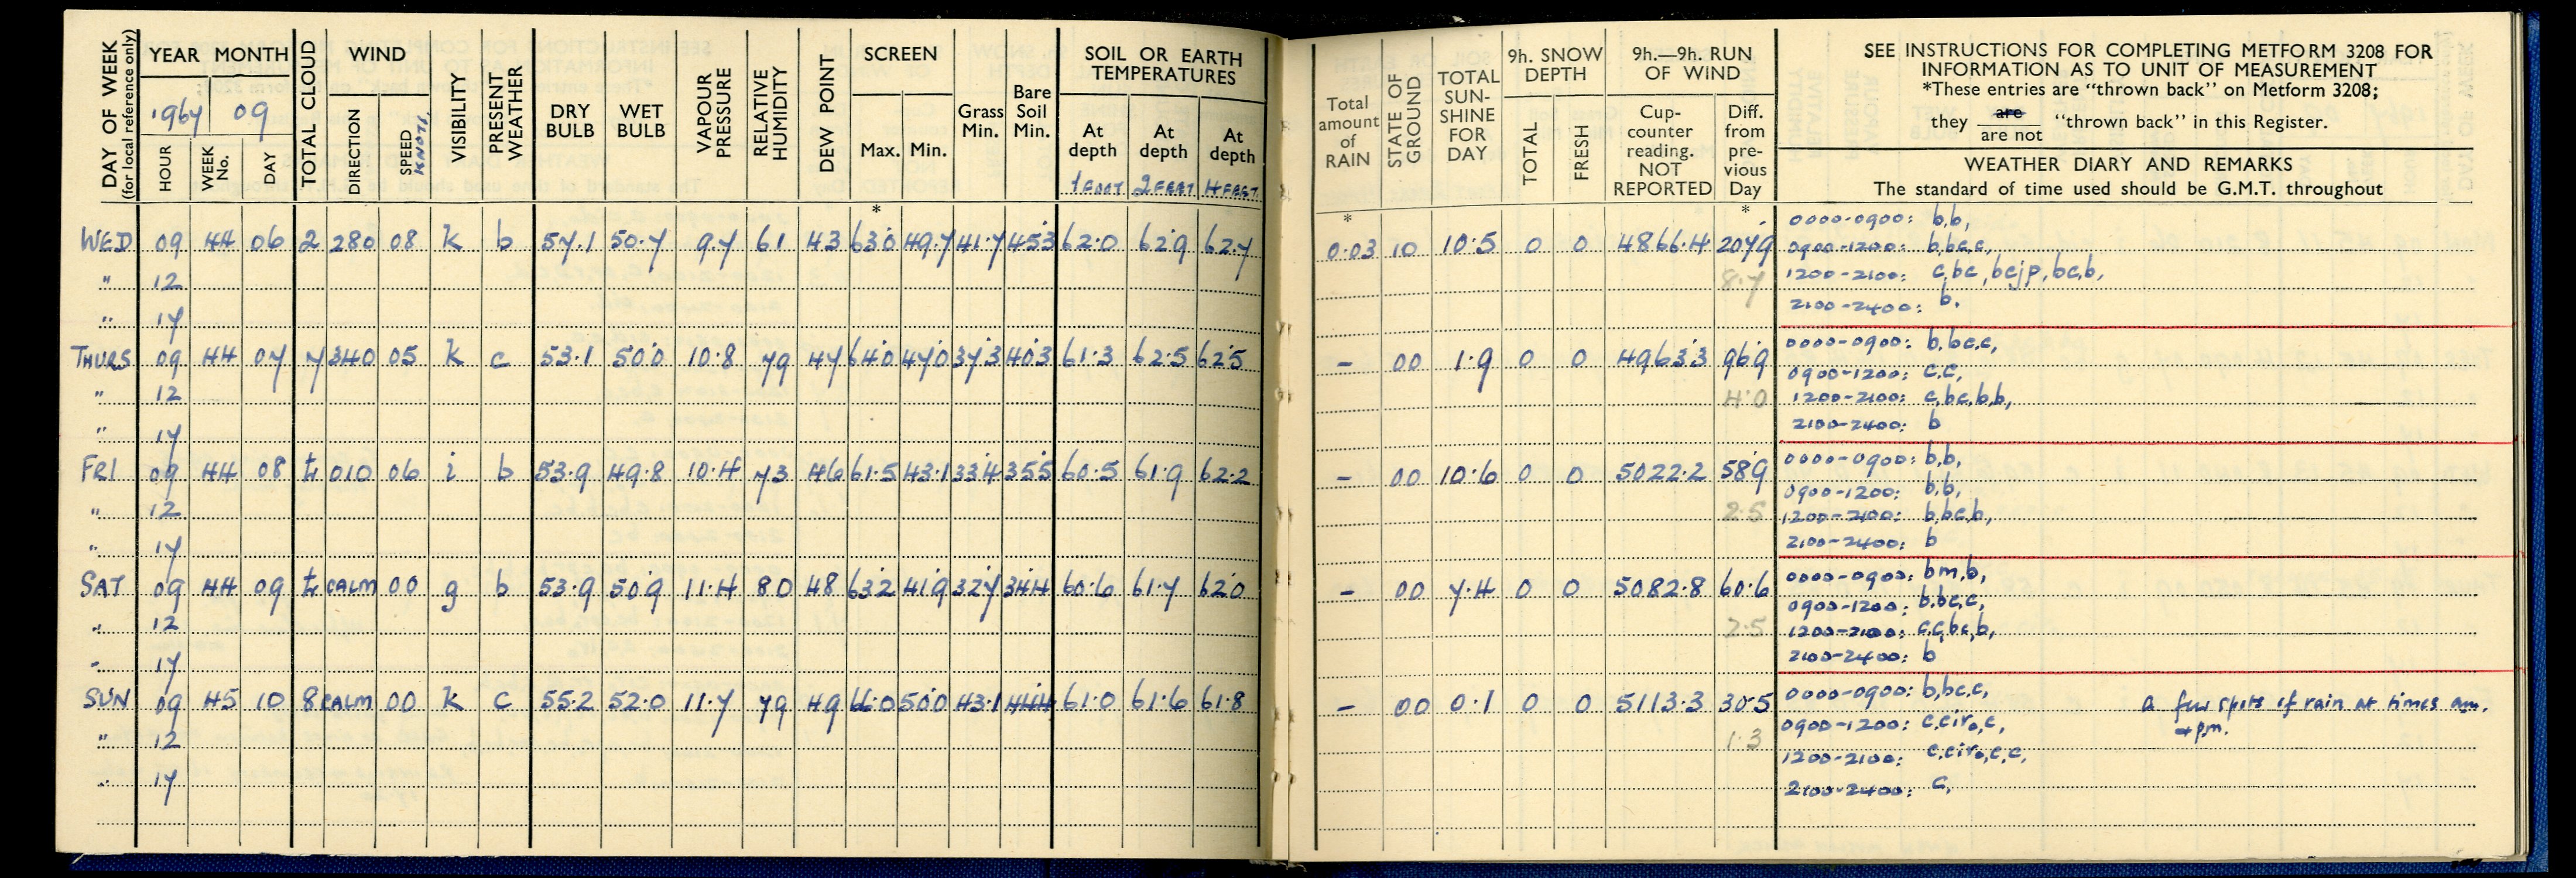 DAY OF WEEK (for local reference only)
YEAR MONTH
1967 09
HOUR WEEK No. DAY
TOTAL CLOUD
WIND
DIRECTION SPEED KNOTS.
VISIBILITY
PRESENT WEATHER
DRY BULB
WET BULB
VAPOUR PRESSURE
RELATIVE HUMIDITY
DEW POINT
SCREEN
Max. Min.
Grass Min.
Bare Soil Min.
SOIL OR EARTH TEMPERATURES
At depth 1 FOOT
At depth 2 FEET
At depth 4 FEET
Total amount of RAIN
STATE OF GROUND
TOTAL SUN-SHINE FOR DAY
9h. SNOW DEPTH
TOTAL FRESH
9h.—9h. RUN OF WIND
Cup-counter reading. NOT REPORTED
Diff. from pre-vious Day
SEE INSTRUCTIONS FOR COMPLETING METFORM 3208 FOR
INFORMATION AS TO UNIT OF MEASUREMENT
*These entries are "thrown back" on Metform 3208;
they are / are not "thrown back" in this Register.
WEATHER DIARY AND REMARKS
The standard of time used should be G.M.T. throughout
* * *
WED 09 44 06 2 280 08 k b 57.1 50.7 9.7 61 43 63.0 49.7 41.7 45.3 62.0 62.9 62.7 0.03 10 10.5 0 0 4866.4 207.9
0000-0900: b,b,
0900-1200: b,bc,c,
" 12 8.7 1200-2100: c,bc,bcjp,bc,b,
" 17 2100-2400: b.
THURS 09 44 07 7 340 05 k c 53.1 50.0 10.8 79 47 64.0 47.0 37.3 40.3 61.3 62.5 62.5 - 00 1.9 0 0 4963.3 96.9
0000-0900: b,bc,c,
0900-1200: c,c,
" 12 4.0 1200-2100: c,bc,b,b,
" 17 2100-2400: b
FRI 09 44 08 tr 010 06 i b 53.9 49.8 10.4 73 46 61.5 43.1 33.4 35.5 60.5 61.9 62.2 - 00 10.6 0 0 5022.2 58.9
0000-0900: b,b,
0900-1200: b,b,
" 12 2.5 1200-2100: b,bc,b,
" 17 2100-2400: b
SAT 09 44 09 tr CALM 00 g b 53.9 50.9 11.4 80 48 63.2 41.9 32.7 34.4 60.6 61.7 62.0 - 00 7.4 0 0 5082.8 60.6
0000-0900: bm,b,
0900-1200: b,bc,c,
" 12 2.5 1200-2100: c,c,bc,b,
" 17 2100-2400: b
SUN 09 45 10 8 CALM 00 k c 55.2 52.0 11.7 79 49 66.0 50.0 43.1 44.4 61.0 61.6 61.8 - 00 0.1 0 0 5113.3 30.5
0000-0900: b,bc,c, a few spots of rain at times am.
+ pm.
0900-1200: c,ciro,c,
" 12 1.3 1200-2100: c,ciro,c,c,
" 17 2100-2400: c,